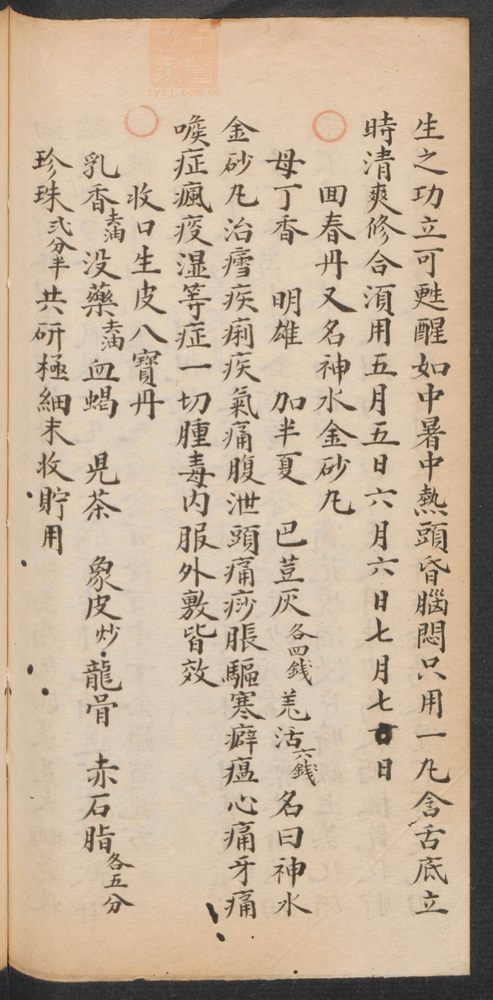 生之功立可甦醒如中暑中熱頭昏腦悶只用一凡含舌底立
時清爽修合須用五月五日六月六日七月七日
回春丹又名神水金砂凡
母丁香 明雄 加半夏 巴荳灰各四錢羌活六錢名曰神水
金砂凡治瘧疾痢疾氣痛腹泄頭痛痧脹驅寒癖瘟心痛牙痛
喉症瘋疫湿等症一切腫毒内服外敷皆效
收口生皮八寶丹
乳香去油没藥去油血蝎 児茶 象皮炒龍骨 赤石脂各五分
珍珠弍分半共研極細末收貯用